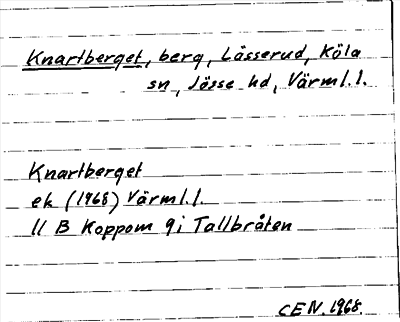 Knartberget, berg, Låsserud, Köla
sn, Jösse hd, Värml. l.
Knartberget
ek (1968) Värml. l.
11 B Koppom 9i Tallbråten
CEN. 1968.